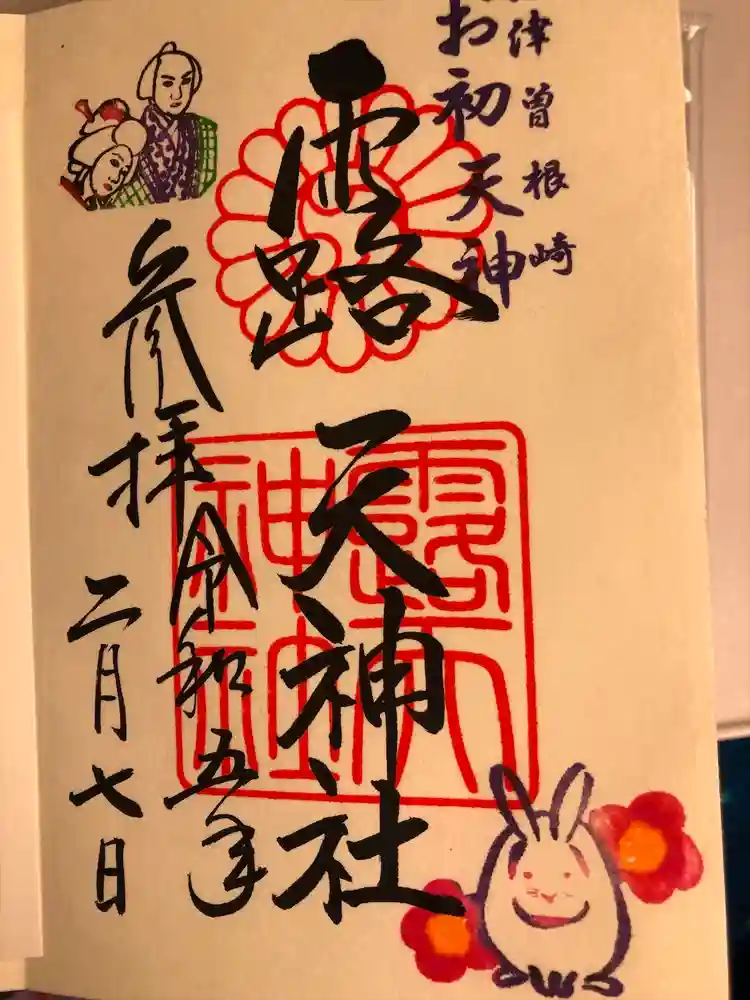 津曽根崎
お初天神
露天神社
参拝
令和五年
二月七日
露天
神社